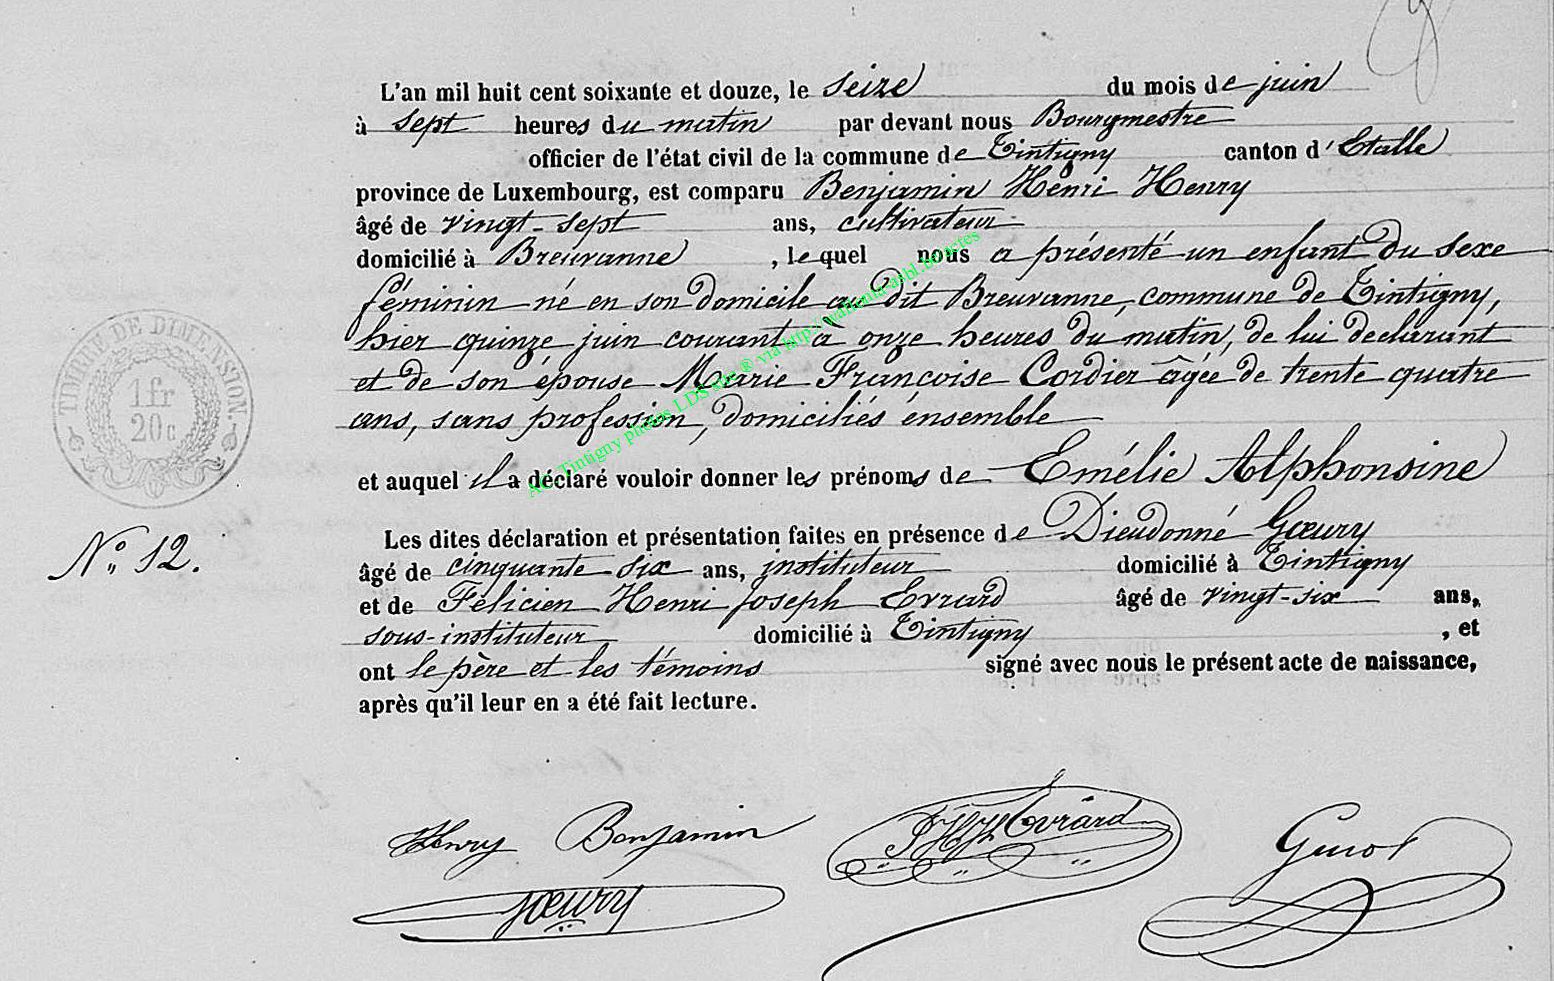 L'an mil huit cent soixante et douze, le seize du mois de juin
à sept heures du matin par devant nous Bourgmestre
officier de l'état civil de la commune de Tintigny canton d'Etalle
province de Luxembourg, est comparu Benjamin Henri Henry
âgé de vingt-sept ans, cultivateur
domicilié à Breuvanne, lequel nous a présenté un enfant du sexe
féminin né en son domicile au dit Breuvanne, commune de Tintigny,
hier quinze juin courant à onze heures du matin, de lui declarant
et de son épouse Marie Françoise Cordier âgée de trente quatre
ans, sans profession, domiciliés ensemble
et auquel il a déclaré vouloir donner les prénoms de Emélie Alphonsine
Les dites déclaration et présentation faites en présence de Dieudonné Gœury
N° 12.
âgé de cinquante six ans, instituteur domicilié à Tintigny
et de Félicien Henri Joseph Evrard âgé de vingt-six ans,
sous-instituteur domicilié à Tintigny, et
ont le père et les témoins signé avec nous le présent acte de naissance,
après qu'il leur en a été fait lecture.
TIMBRE DE DIMENSION.
1fr
20c
Tintigny photos LDS via http://wallonia-asbl.be/actes
Henry Benjamin
F H J Evrard
Gœury